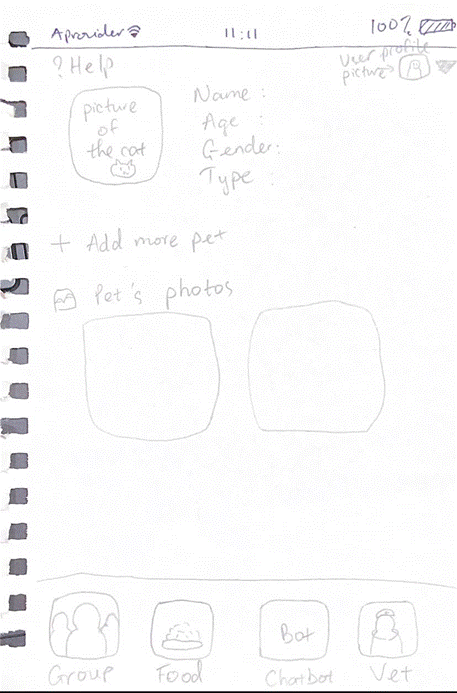 Aprovider 11:11 100%
? Help
User profile
picture →
picture
of
the cat
Name :
Age :
Gender:
Type :
+ Add more pet
Pet's photos
Bot
Group Food Chatbot Vet